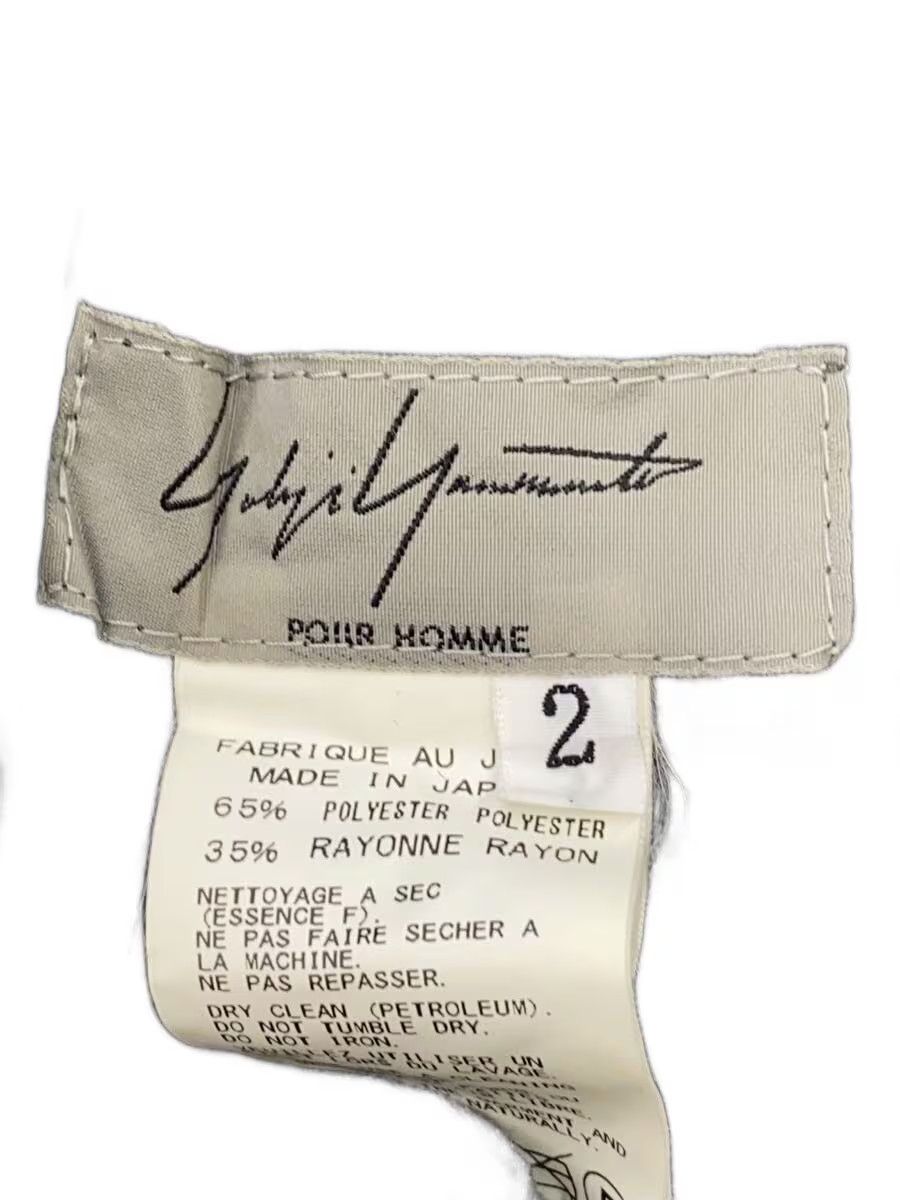 Yohji Yamamoto
POUR HOMME
2
FABRIQUE AU J
MADE IN JAP
65% POLYESTER POLYESTER
35% RAYONNE RAYON
NETTOYAGE A SEC
(ESSENCE F).
NE PAS FAIRE SECHER A
LA MACHINE.
NE PAS REPASSER.
DRY CLEAN (PETROLEUM).
DO NOT TUMBLE DRY.
DO NOT IRON.
VEUILLEZ UTILISER UN
LORS DU LAVAGE.
CLEANING
LIBRE.
GARMENT AND
NATURALLY.